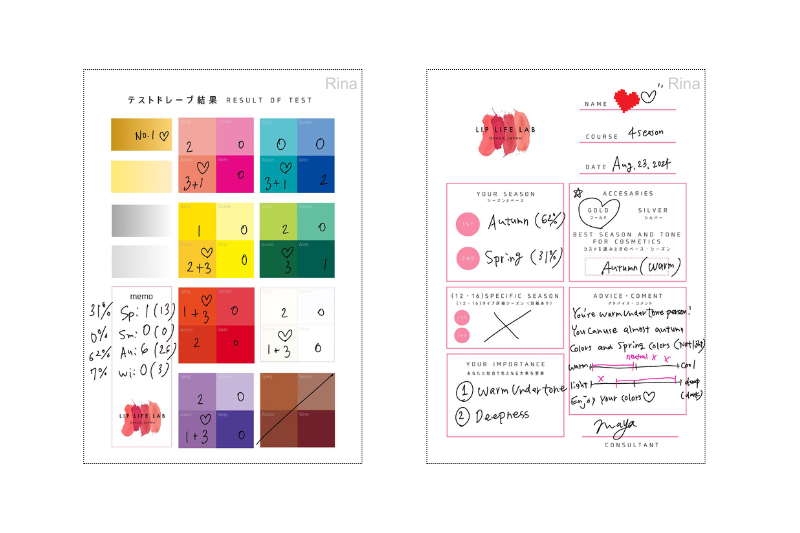 Rina
テストドレープ結果 RESULT OF TEST
No.1 ♡
2 0
♡
3+1 0
0 0
♡
3+1 2
1 0
♡
2+3 0
2 0
♡
3 1
♡
1+3 0
2 0
2 0
♡
1+3 0
2 0
♡
1+3 0
memo
31% Sp: 1 (13)
0% Sm: 0 (0)
62% Au: 6 (26)
7% Wi: 0 (3)
LIP LIFE LAB
OSAKA JAPAN
Rina
LIP LIFE LAB
OSAKA JAPAN
NAME
COURSE 4 season
DATE Aug, 23, 2024
YOUR SEASON
シーズン＆ベース
1ST Autumn (62%)
2ND Spring (31%)
ACCESARIES
GOLD SILVER
ゴールド シルバー
BEST SEASON AND TONE
FOR COSMETICS
コスメを選ぶときのベース・シーズン
Autumn (warm)
(12・16)SPECIFIC SEASON
1ST
YOUR IMPORTANCE
あなたに似合う色となる大事な要素
① Warm Undertone
② Deepness
ADVICE・COMENT
アドバイス・コメント
You're warm Undertone person!
You can use almost autumn
Colors and Spring colors (not light)
neutral
warm cool
light deep
(dark)
Enjoy your colors ♡
maya
CONSULTANT